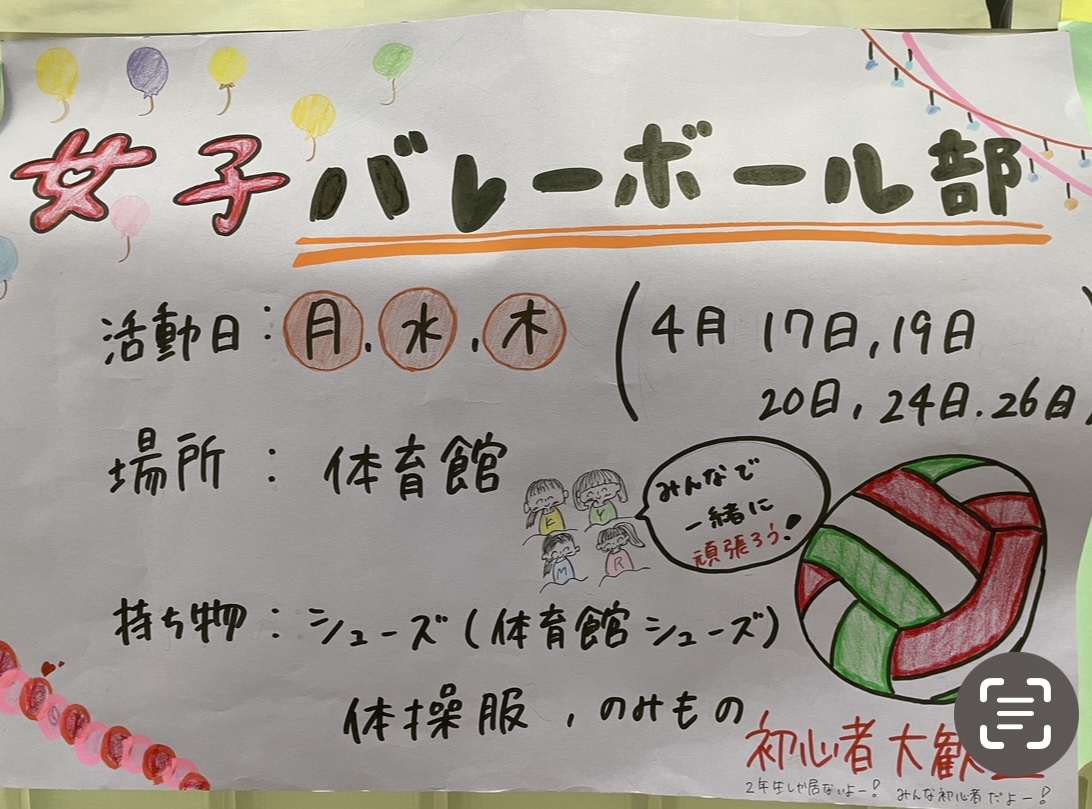 女子バレーボール部
活動日：月.水.木（4月 17日,19日
20日,24日.26日）
場所：体育館
K Y
M R
みんなで
一緒に
頑張ろう！
持ち物：シューズ（体育館シューズ）
体操服，のみもの
初心者 大歓
2年生しか居ないよー！ みんな初心者だよー！